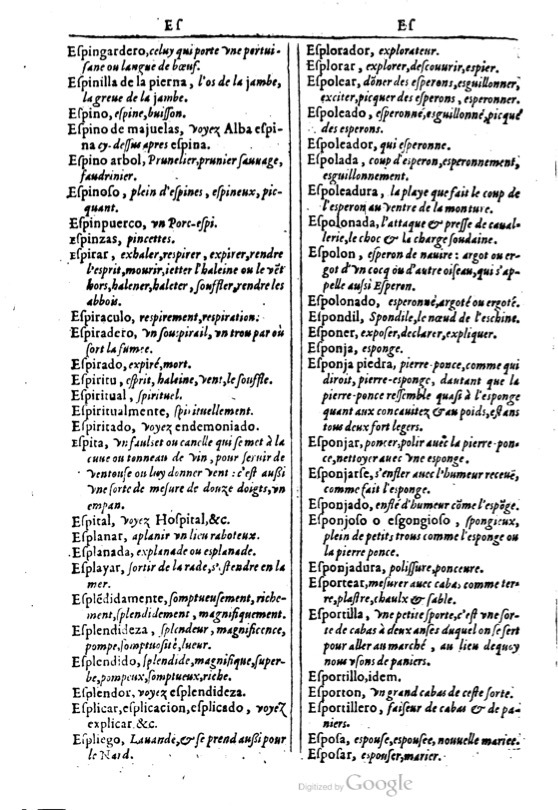 Eſ
Eſpingardero, celuy qui porte vne pertui-
ſane ou langue de bœuf.
Eſpinilla de la pierna, l'os de la jambe,
la greue de la jambe.
Eſpino, eſpine, buiſſon.
Eſpino de majuelas, voyez Alba eſpi-
na cy-deſſus apres eſpina.
Eſpino arbol, Prunelier, prunier ſauuage,
faudrinier.
Eſpinoſo, plein d'eſpines, eſpineux, pic-
quant.
Eſpinpuerco, vn Porc-eſpi.
Eſpinzas, pincettes.
Eſpirar, exhaler, reſpirer, expirer, rendre
l'esprit, mourir, ietter l'haleine ou le vẽt
hors, halener, haleter, ſouffler, rendre les
abbois.
Eſpiraculo, reſpirement, reſpiration:
Eſpiradero, vn ſouſpirail, vn trou par où
ſort la fumee.
Eſpirado, expiré, mort.
Eſpiritu, eſprit, haleine, vent, le ſouffle.
Eſpiritual, ſpirituel.
Eſpiritualmente, ſpirituellement.
Eſpiritado, voyez endemoniado.
Eſpita, vn fauſſet ou canelle qui ſe met à la
cuue ou tonneau de vin, pour ſeruir de
ventouſe ou luy donner vent: c'eſt auſſi
vne ſorte de meſure de douze doigts, vn
empan.
Eſpital, voyez Hoſpital, &c.
Eſplanar, aplanir vn lieu raboteux.
Eſplanada, explanade ou esplanade.
Eſplayar, ſortir de la rade, s'eſtendre en la
mer.
Eſplẽdidamente, ſomptueuſement, riche-
ment, ſplendidement, magnifiquement.
Eſplendideza, ſplendeur, magnificence,
pompe, ſomptuoſité, lueur.
Eſplendido, ſplendide, magnifique, ſuper-
be, pompeux, ſomptueux, riche.
Eſplendor, voyez eſplendideza.
Eſplicar, eſplicacion, eſplicado, voyez
explicar, &c.
Eſpliego, Lauande, & ſe prend auſſi pour
le Nard.
Eſ
Eſplorador, explorateur.
Eſplorar, explorer, deſcouurir, eſpier.
Eſpolear, dõner des eſperons, esguillonner,
exciter, picquer des eſperons, eſperonner.
Eſpoleado, eſperonné, esguillonné, picqué
des esperons.
Eſpoleador, qui eſperonne.
Eſpolada, coup d'eſperon, eſperonnement,
esguillonnement.
Eſpoleadura, la playe que fait le coup de
l'esperon au ventre de la monture.
Eſpolonada, l'attaque & preſſe de caual-
lerie, le choc & la charge ſoudaine.
Eſpolon, eſperon de nauire: argot ou er-
got d'vn cocq ou d'autre oiſeau, qui s'ap-
pelle auſſi Eſperon.
Eſpolonado, eſperonné, argoté ou ergoté.
Eſpondil, Spondile, le nœud de l'eschine.
Eſponer, expoſer, declarer, expliquer.
Eſponja, eſponge.
Eſponja piedra, pierre-ponce, comme qui
diroit, pierre-esponge, dautant que la
pierre-ponce reſſemble quaſi à l'eſponge
quant aux concauitez & au poids, eſtans
tous deux fort legers.
Eſponjar, poncer, polir auec la pierre-pon-
ce, nettoyer auec vne eſponge.
Eſponjarſe, s'enfler auec l'humeur receuë,
comme fait l'eſponge.
Eſponjado, enflé d'humeur cõme l'eſpõge.
Eſponjoſo o eſgongioſo, ſpongieux,
plein de petits trous comme l'eſponge ou
la pierre ponce.
Eſponjadura, poliſſure, ponceure.
Eſportear, meſurer auec cabas comme ter-
re, plaſtre, chaulx & ſable.
Eſportilla, vne petite ſporte, c'eſt vne ſor-
te de cabas à deux anſes duquel on ſe ſert
pour aller au marché, au lieu dequoy
nous vſons de paniers.
Eſportillo, idem.
Eſporton, vn grand cabas de ceſte ſorte.
Eſportillero, faiſeur de cabas & de pa-
niers.
Eſpoſa, eſpouſe, eſpouſee, nouuelle mariee.
Eſpoſar, eſpouſer, marier.
Digitized by Google